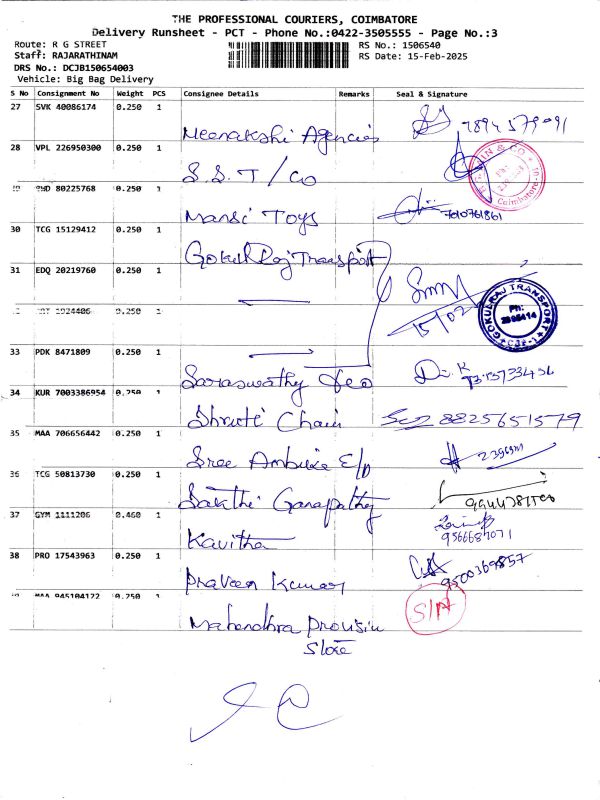 THE PROFESSIONAL COURIERS, COIMBATORE
Delivery Runsheet - PCT - Phone No.:0422-3505555 - Page No.:3
Route: R G STREET
RS No.: 1506540
Staff: RAJARATHINAM
RS Date: 15-Feb-2025
DRS No.: DCJB150654003
Vehicle: Big Bag Delivery
S No Consignment No Weight PCS Consignee Details Remarks Seal & Signature
27 SVK 40086174 0.250 1
Meenakshi Agencies
28 VPL 226950300 0.250 1
S.S.T / Co
80225768 0.250 1
Mansi Toys 7010761861
30 TCG 15129412 0.250 1
Gokul Raj Transport
31 EDQ 20219760 0.250 1
15/02
GOKULRAJ TRANSPORT
Ph:
CBE-1
33 PDK 8471809 0.250 1
Saraswathy
34 KUR 7003386954 0.250 1
Shruti Chain 8825651579
35 MAA 706656442 0.250 1
Sree E/D
36 TCG 50813730 0.250 1
Sakthi Ganapathy
37 GYM 1111206 0.460 1
Kavitha
9566687071
38 PRO 17543963 0.250 1
Praveen Kumar 9500369857
MAA 945104122 0.250 1
Mahendhra Provisin
Store